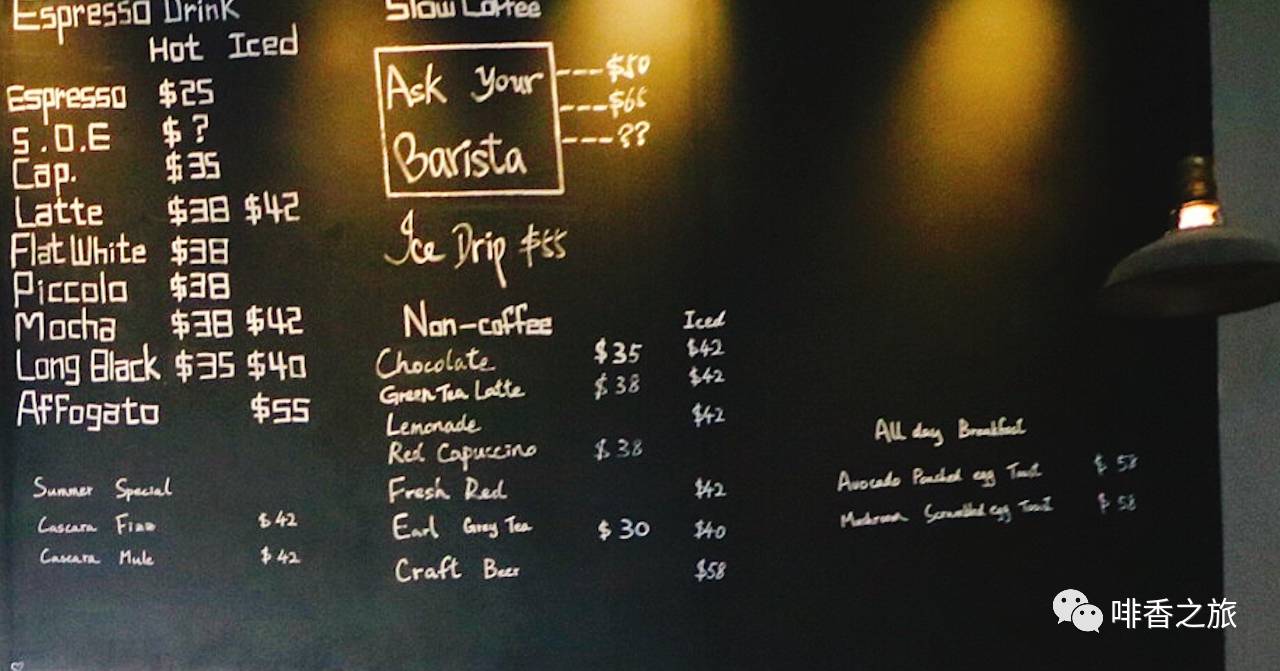 Espresso Drink
Hot Iced
Espresso $25
S.O.E $ ?
Cap. $35
Latte $38 $42
Flat White $38
Piccolo $38
Mocha $38 $42
Long Black $35 $40
Affogato $55
Summer Special
Cascara Fizz $42
Cascara Mule $42
Slow Coffee
Ask Your
Barista
---$50
---$65
---??
Ice Drip $55
Non-coffee Iced
Chocolate $35 $42
Green Tea Latte $38 $42
Lemonade $42
Red Capuccino $38
Fresh Red $42
Earl Grey Tea $30 $40
Craft Beer $58
All day Breakfast
Avocado Poached egg Toast $58
Mushroom Scrambled egg Toast $58
啡香之旅